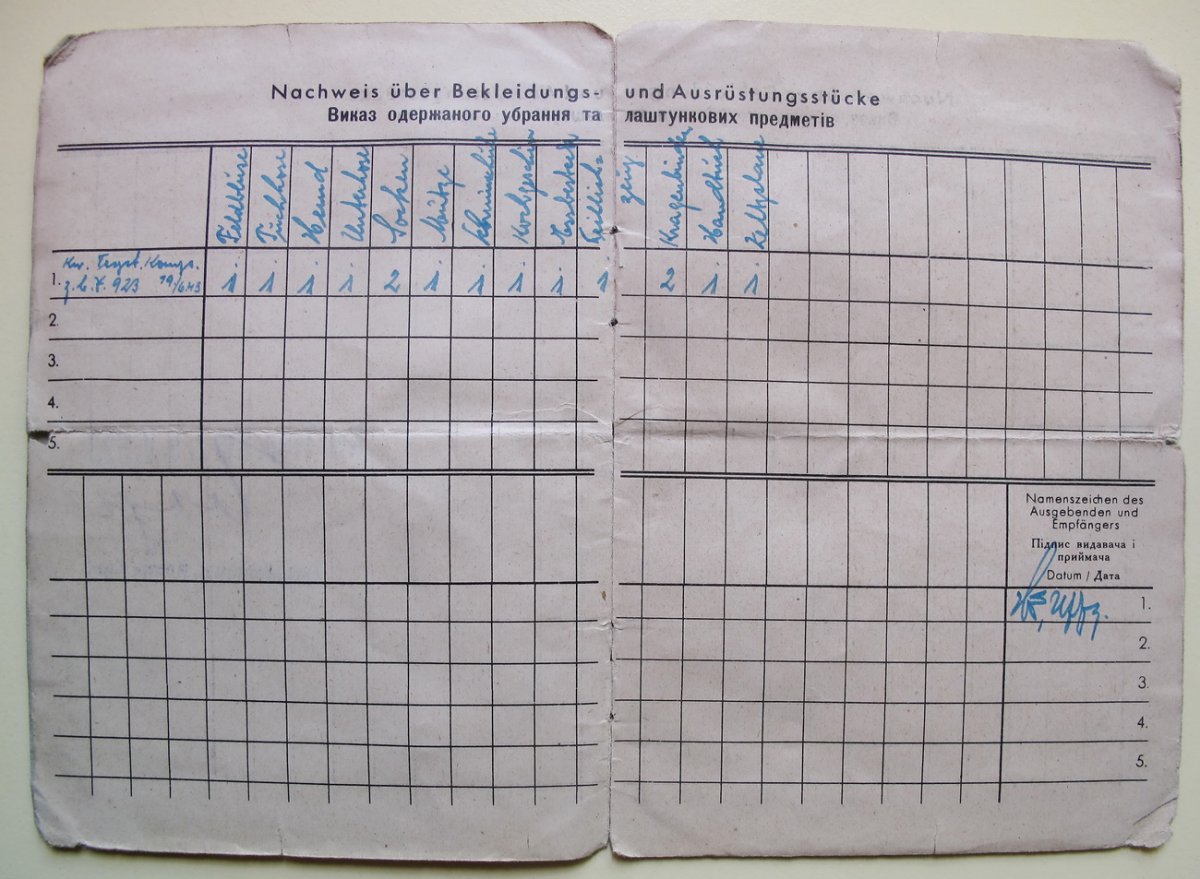 Nachweis über Bekleidungs- und Ausrüstungsstücke
Виказ одержаного убрання та лаштункових предметів
Feldbluse Tuchhose Hemd Unterhose Socken Mütze Schnürschuhe Kochgeschirr Essbesteck Drillich= zeug Kragenbinden Handtuch Zeltplane
Kw. Trspt. Komp.
1. z.b.V. 923 19/6.43 1 1 1 1 2 1 1 1 1 1 2 1 1
2.
3.
4.
5.
Namenszeichen des
Ausgebenden und
Empfängers
Підпис видавача і
приймача
Datum / Дата
Uffz. 1.
2.
3.
4.
5.